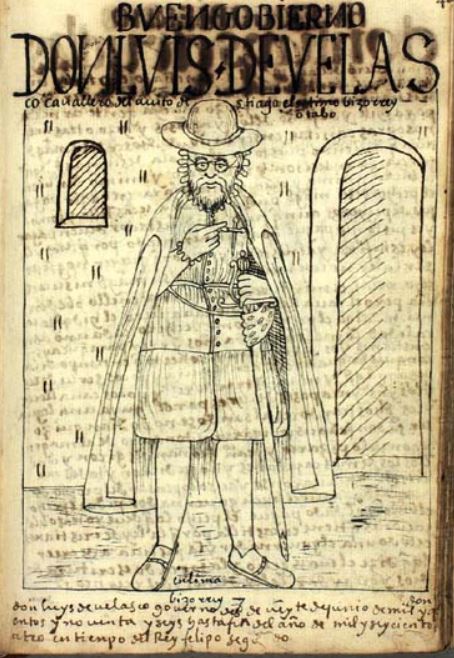 BVEN GOBIERNO
DON LVIS DE VELAS
co cauallero del auito de s tiago el setimo bizorrey
otabo
en lima
bizorrey don
don luys de uelasco gouerno des de ueynte de junio de mil y quini
entos y nouenta y seys hasta fin del año de mil y seycientos y
en tiempo del Rey felipo segundo